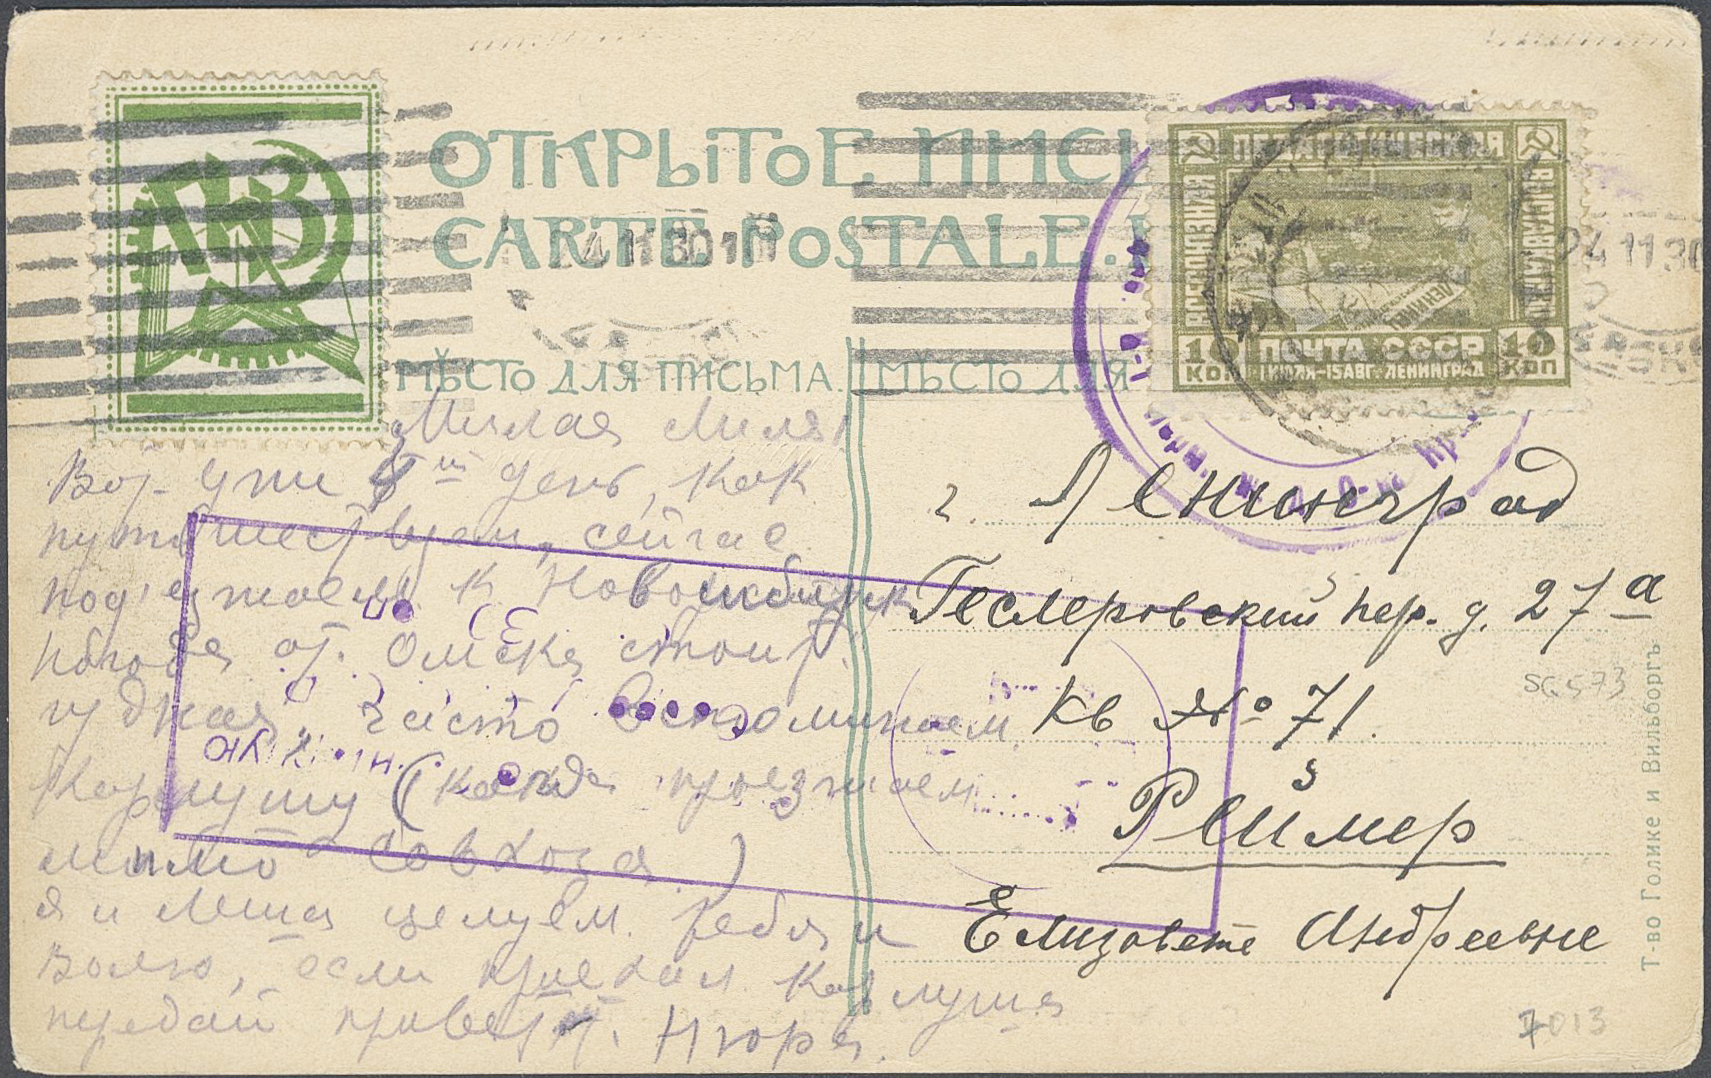 ОТКРЫТОЕ ПИСЬ
CARTE POSTALE.
24 11 30
24 11 30
МѢСТО ДЛЯ ПИСЬМА. МѢСТО ДЛЯ
ВСЕСОЮЗНАЯ
ПЕДАГОГИЧЕСКАЯ
ВЫСТАВКА
10 КОП ПОЧТА СССР 10 КОП
1 ИЮЛЯ-15 АВГ. ЛЕНИНГРАД
Милая Миля!
Вот уже 5ый день, как
путешествуем, сейчас
под'езжаем к Новосибирск
Погода от Омска стоит
чудная, часто вспоминаем
Карлушу (когда проезжаем
мимо совхоза.)
я и Леша целуем тебя и
Волю, если приехал Карлуша
передай привет.
г. Ленинград
Геслеровский пер. д. 27а
кв № 71.
Реймер
Елизавете Андреевне
Т-во Голике и Вильборгъ
SG 573
7013